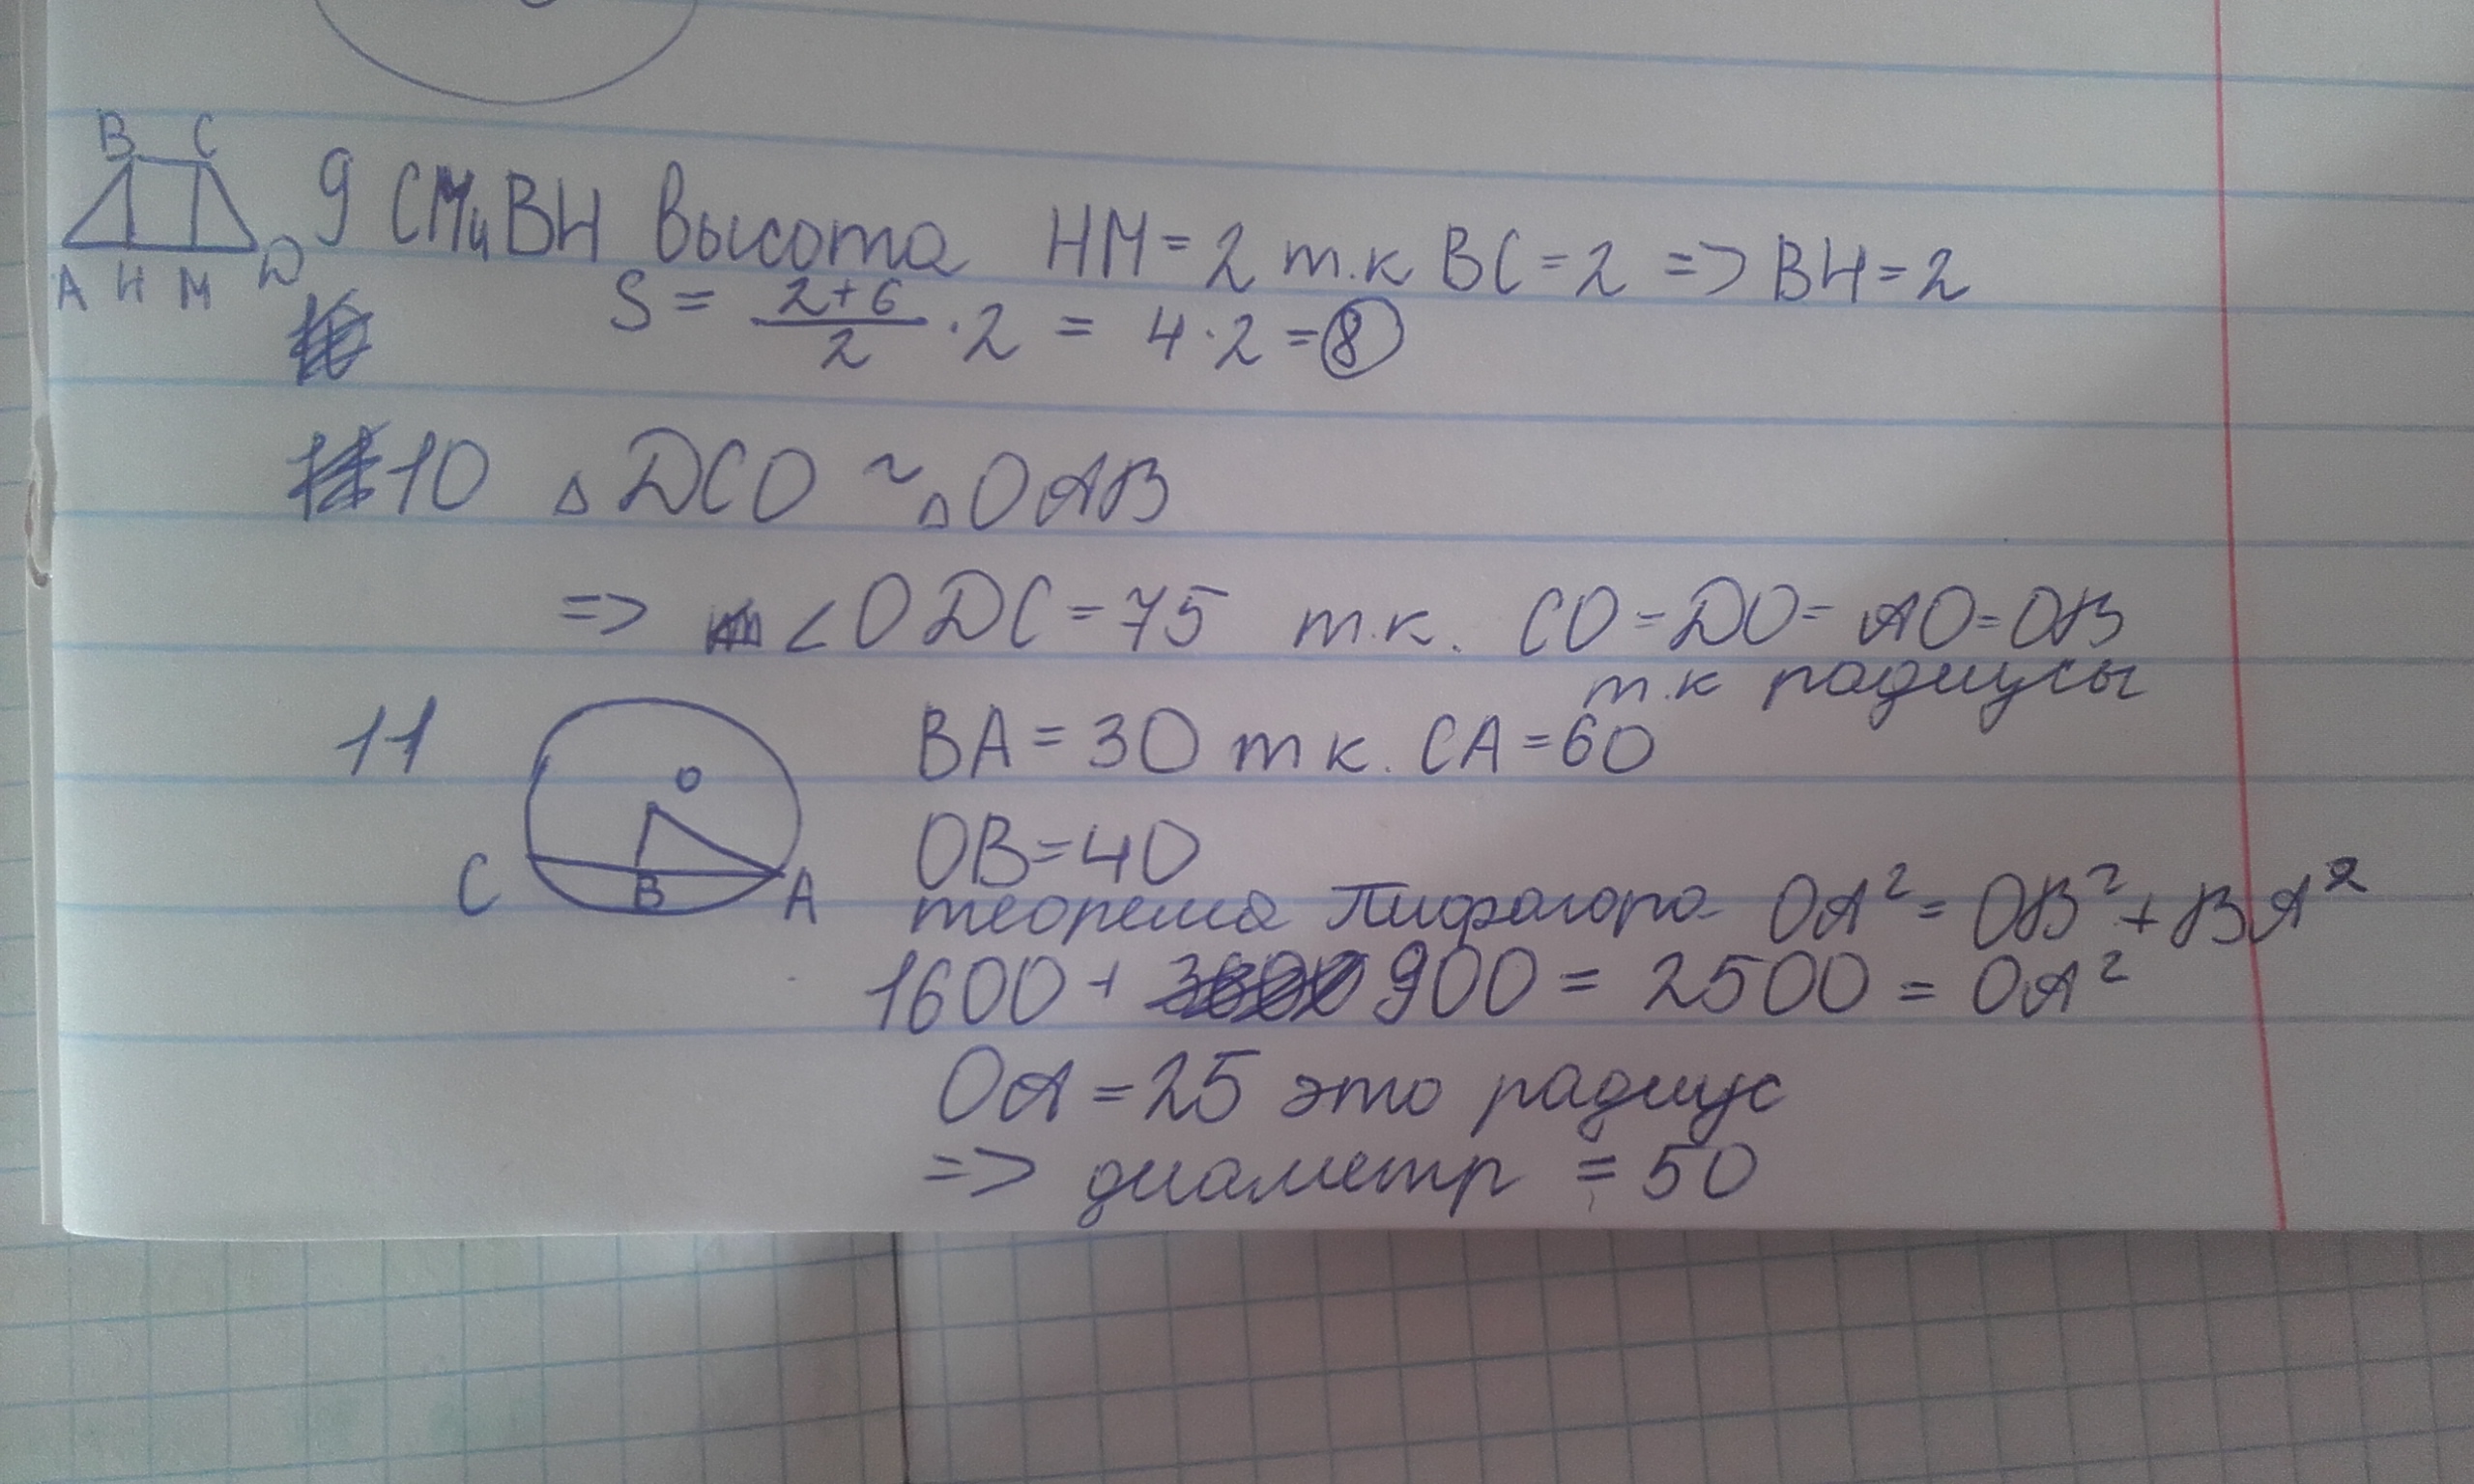 B C
9 CM и BH высота HM = 2 т.к BC = 2 => BH = 2
A H M D
S = 2+6/2 · 2 = 4 · 2 = 8
10 △ DCO ~ △ OAB
=> < ODC = 75 т.к. CO = DO = AO = OB
т.к радиусы
11 BA = 30 т к. CA = 60
O
OB = 40
C B A
теорема Пифагора OA² = OB² + BA²
1600 + 900 = 2500 = OA²
OA = 25 это радиус
=> диаметр = 50